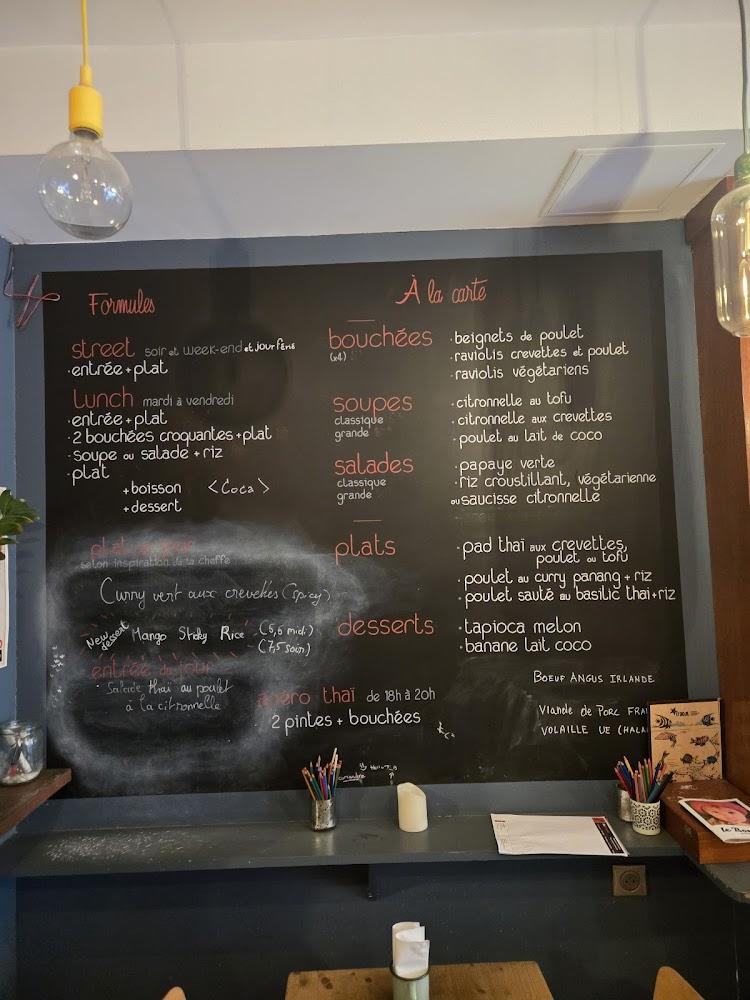 Formules
street soir et week-end et jour férié
• entrée + plat
lunch mardi à vendredi
• entrée + plat
• 2 bouchées croquantes + plat
• soupe ou salade + riz
• plat
+ boisson <Coca>
+ dessert
plat du jour
selon inspiration de la cheffe
Curry vert aux crevettes (spicy)
New dessert Mango Sticky Rice (6,6 midi)
(7,5 soir)
entrée du jour
• Salade thaï au poulet
à la citronnelle
apéro thaï de 18h à 20h
2 pintes + bouchées
À la carte
bouchées
(x4)
• beignets de poulet
• raviolis crevettes et poulet
• raviolis végétariens
soupes
classique
grande
• citronnelle au tofu
• citronnelle aux crevettes
• poulet au lait de coco
salades
classique
grande
• papaye verte
• riz croustillant, végétarienne
ou saucisse citronnelle
plats
• pad thaï aux crevettes,
poulet ou tofu
• poulet au curry panang + riz
• poulet sauté au basilic thaï + riz
desserts
• tapioca melon
• banane lait coco
BOEUF ANGUS IRLANDE
Viande de PORC FRA
VOLAILLE UE (HALA